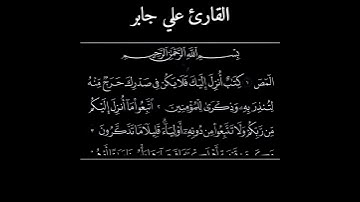 القارئ علي جابر
بِسْمِ اللَّهِ الرَّحْمَٰنِ الرَّحِيمِ
الٓمٓصٓ ١ كِتَٰبٌ أُنزِلَ إِلَيْكَ فَلَا يَكُن فِي صَدْرِكَ حَرَجٌ مِّنْهُ
لِتُنذِرَ بِهِۦ وَذِكْرَىٰ لِلْمُؤْمِنِينَ ٢ ٱتَّبِعُوا۟ مَآ أُنزِلَ إِلَيْكُم
مِّن رَّبِّكُمْ وَلَا تَتَّبِعُوا۟ مِن دُونِهِۦٓ أَوْلِيَآءَ ۗ قَلِيلًا مَّا تَذَكَّرُونَ ٣